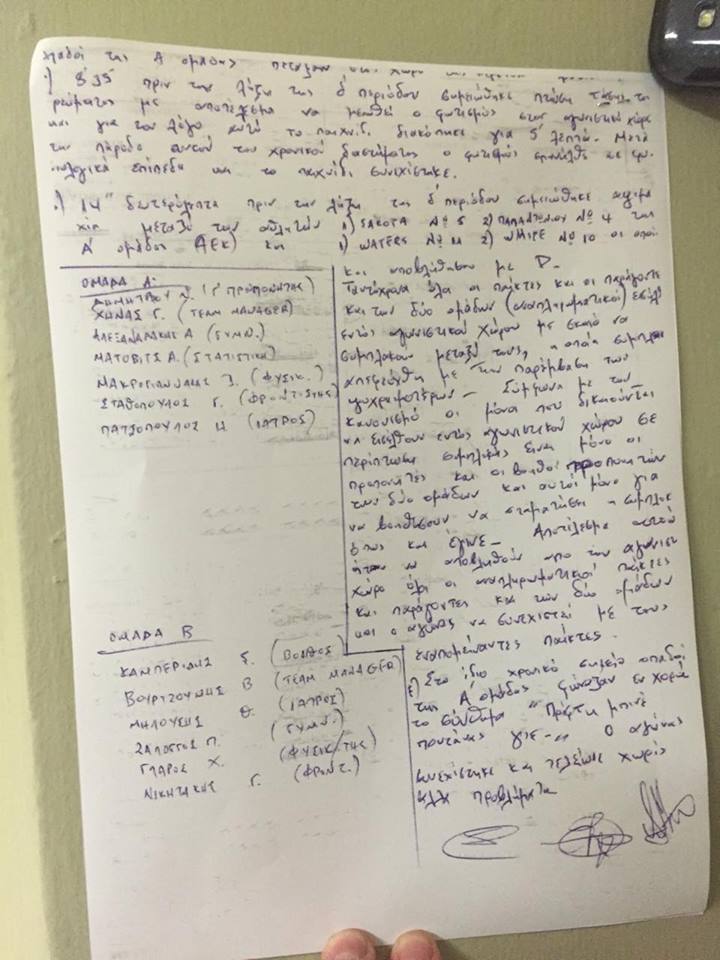 οπαδοί της Α ομάδας πέταξαν στο χώρο της
.) 8'35" πριν την λήξη της δ περιόδου σημειώθηκε πτώση τάσης του
ρεύματος με αποτέλεσμα να μειωθεί ο φωτισμός στον αγωνιστικό χώρο
και για τον λόγο αυτό το παιχνίδ. διακόπηκε για 5' λεπτά. Μετά
την πάροδο αυτού του χρονικού διαστήματος ο φωτισμός επανήλθε σε φυ-
σιολογικά επίπεδα και το παιχνίδι συνεχίστηκε.
.) 14" δευτερόλεπτα πριν την λήξη της δ' περιόδου σημειώθηκε αψιμα
χία μεταξύ των αθλητών 1) SAKOTA Νο 5 2) ΠΑΠΑΝΤΩΝΙΟΥ Νο 4 της
Α' ομάδος (ΑΕΚ) και 1) WATERS Νο 11 2) WHITE Νο 10 οι οποί
ΟΜΑΔΑ Α:
ΔΗΜΗΤΡΙΟΥ (Γ' ΠΡΟΠΟΝΗΤΗΣ)
ΧΗΝΑΣ Γ. (TEAM MANAGER)
ΑΛΕΞΑΝΔΡΑΚΗΣ Α (ΓΥΜΝ.)
ΜΑΤΟΒΙΤΣ Α. (ΣΤΑΤΙΣΤΙΚΗ)
ΜΑΚΡΟΓΙΑΝΝΙΔΗΣ (ΦΥΣΙΚ.)
ΣΤΑΘΟΠΟΥΛΟΣ Γ. (ΦΡΟΝΤΙΣΤΗΣ)
ΠΑΤΣΟΠΟΥΛΟΣ Η (ΙΑΤΡΟΣ)
ΟΜΑΔΑ Β
ΚΑΜΠΕΡΙΔΗΣ Σ. (ΒΟΗΘΟΣ)
ΒΟΥΡΤΖΟΥΜΗΣ Β (TEAM MANAGER)
ΜΗΛΟΥΣΗΣ Θ. (ΙΑΤΡΟΣ)
ΣΑΛΟΓΓΟΣ Π. (ΓΥΜΝ.)
ΓΛΑΡΟΣ Χ. (ΦΥΣΙΚ/ΤΗΣ)
ΝΙΚΗΤΑΚΗΣ Γ. (ΦΡΟΝΤ.)
και αποβλήθησαν με D.
Ταυτόχρονα όλοι οι παίκτες και οι παράγοντε
και των δύο ομάδων (αναπληρωματικοί) εισήλθ
εντός αγωνιστικού χώρου με σκοπό να
συμπλακούν μεταξύ τους, η οποία συμπλοκ
απεφεύχθη με την παρέμβαση των
ψυχραιμοτέρων - Σύμφωνα με τον
κανονισμό οι μόνοι που δικαιούνται
να εισέλθουν εντός αγωνιστικού χώρου σε
περίπτωση συμπλοκής είναι μόνο οι
προπονητές και οι βοηθοί προπονητών
των δύο ομάδων και αυτοί μόνο για
να βοηθήσουν να σταματήσει η συμπλοκ
όπως και έγινε - Αποτέλεσμα αυτού
ήταν να αποβληθούν από τον αγωνιστ
χώρο όλοι οι αναπληρωματικοί παίκτες
και παράγοντες και των δύο ομάδων
και ο αγώνας να συνεχιστεί με τους
εναπομείναντες παίκτες.
ε) Στο ίδιο χρονικό σημείο οπαδοί
της Α' ομάδος φώναζαν εν χορώ
το σύνθημα " Πέρτη μπινέ
πουτάνας γιε-" Ο αγώνας
συνεχίστηκε και τελείωσε χωρίς
άλλα προβλήματα